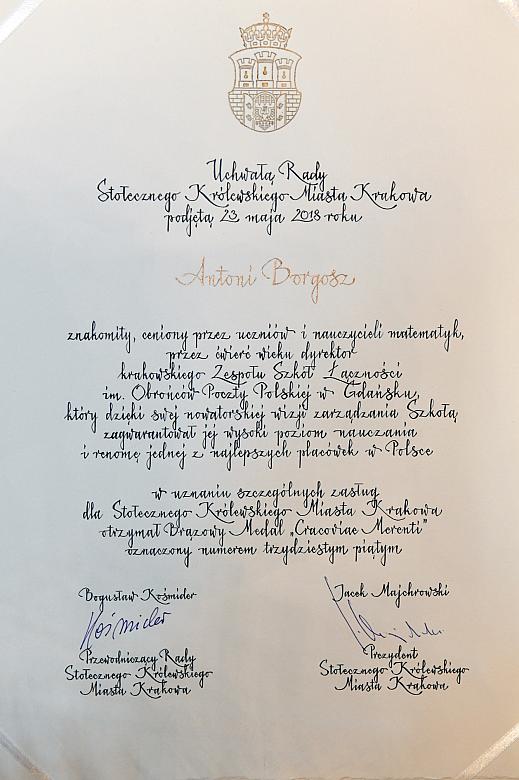 Uchwałą Rady
Stołecznego Królewskiego Miasta Krakowa
podjętą 23 maja 2018 roku
Antoni Borgosz
znakomity, ceniony przez uczniów i nauczycieli matematyk,
przez ćwierć wieku dyrektor
krakowskiego Zespołu Szkół Łączności
im. Obrońców Poczty Polskiej w Gdańsku,
który dzięki swej nowatorskiej wizji zarządzania Szkołą
zagwarantował jej wysoki poziom nauczania
i renomę jednej z najlepszych placówek w Polsce
w uznaniu szczególnych zasług
dla Stołecznego Królewskiego Miasta Krakowa
otrzymał Brązowy Medal „Cracoviae Merenti”
oznaczony numerem trzydziestym piątym
Bogusław Kośmider
Kośmider
Przewodniczący Rady
Stołecznego Królewskiego
Miasta Krakowa
Jacek Majchrowski
Prezydent
Stołecznego Królewskiego
Miasta Krakowa